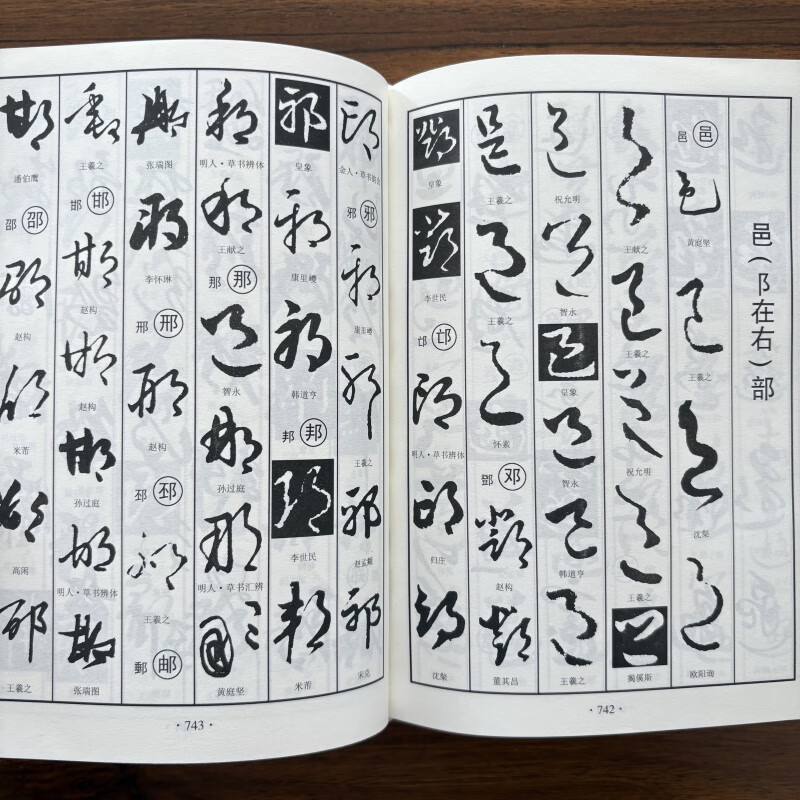 邑(阝在右)部
邑 邑
黄庭坚
王羲之
沈粲
欧阳询
王献之
王羲之
祝允明
揭傒斯
祝允明
智永
皇象
智永
韩道亨
王羲之
王羲之
王羲之
怀素
鄧 邓
赵构
董其昌
皇象
李世民
邙 邙
明人·草书辨体
归庄
沈粲
·742·
邪 邪
康里巎
王羲之
赵孟頫
宋克
皇象
康里巎
韩道亨
邦 邦
李世民
米芾
明人·草书辨体
王献之
那 那
智永
孙过庭
明人·草书汇辨
黄庭坚
张瑞图
李怀琳
邢 邢
赵构
邳 邳
王羲之
郵 邮
王羲之
邯 邯
赵构
赵构
孙过庭
明人·草书辨体
张瑞图
潘伯鹰
邵 邵
赵构
米芾
高闲
王羲之
·743·